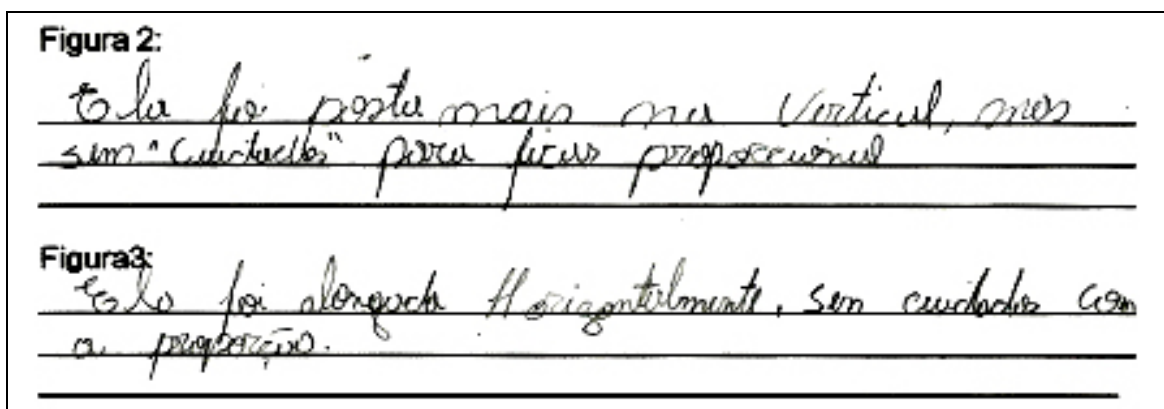 Figura 2:
Ela foi posta mais na Vertical, mas
sem "cuidados" para ficar proporcional
Figura3:
Ela foi alongada Horizontalmente, sem cuidados com
a proporção.